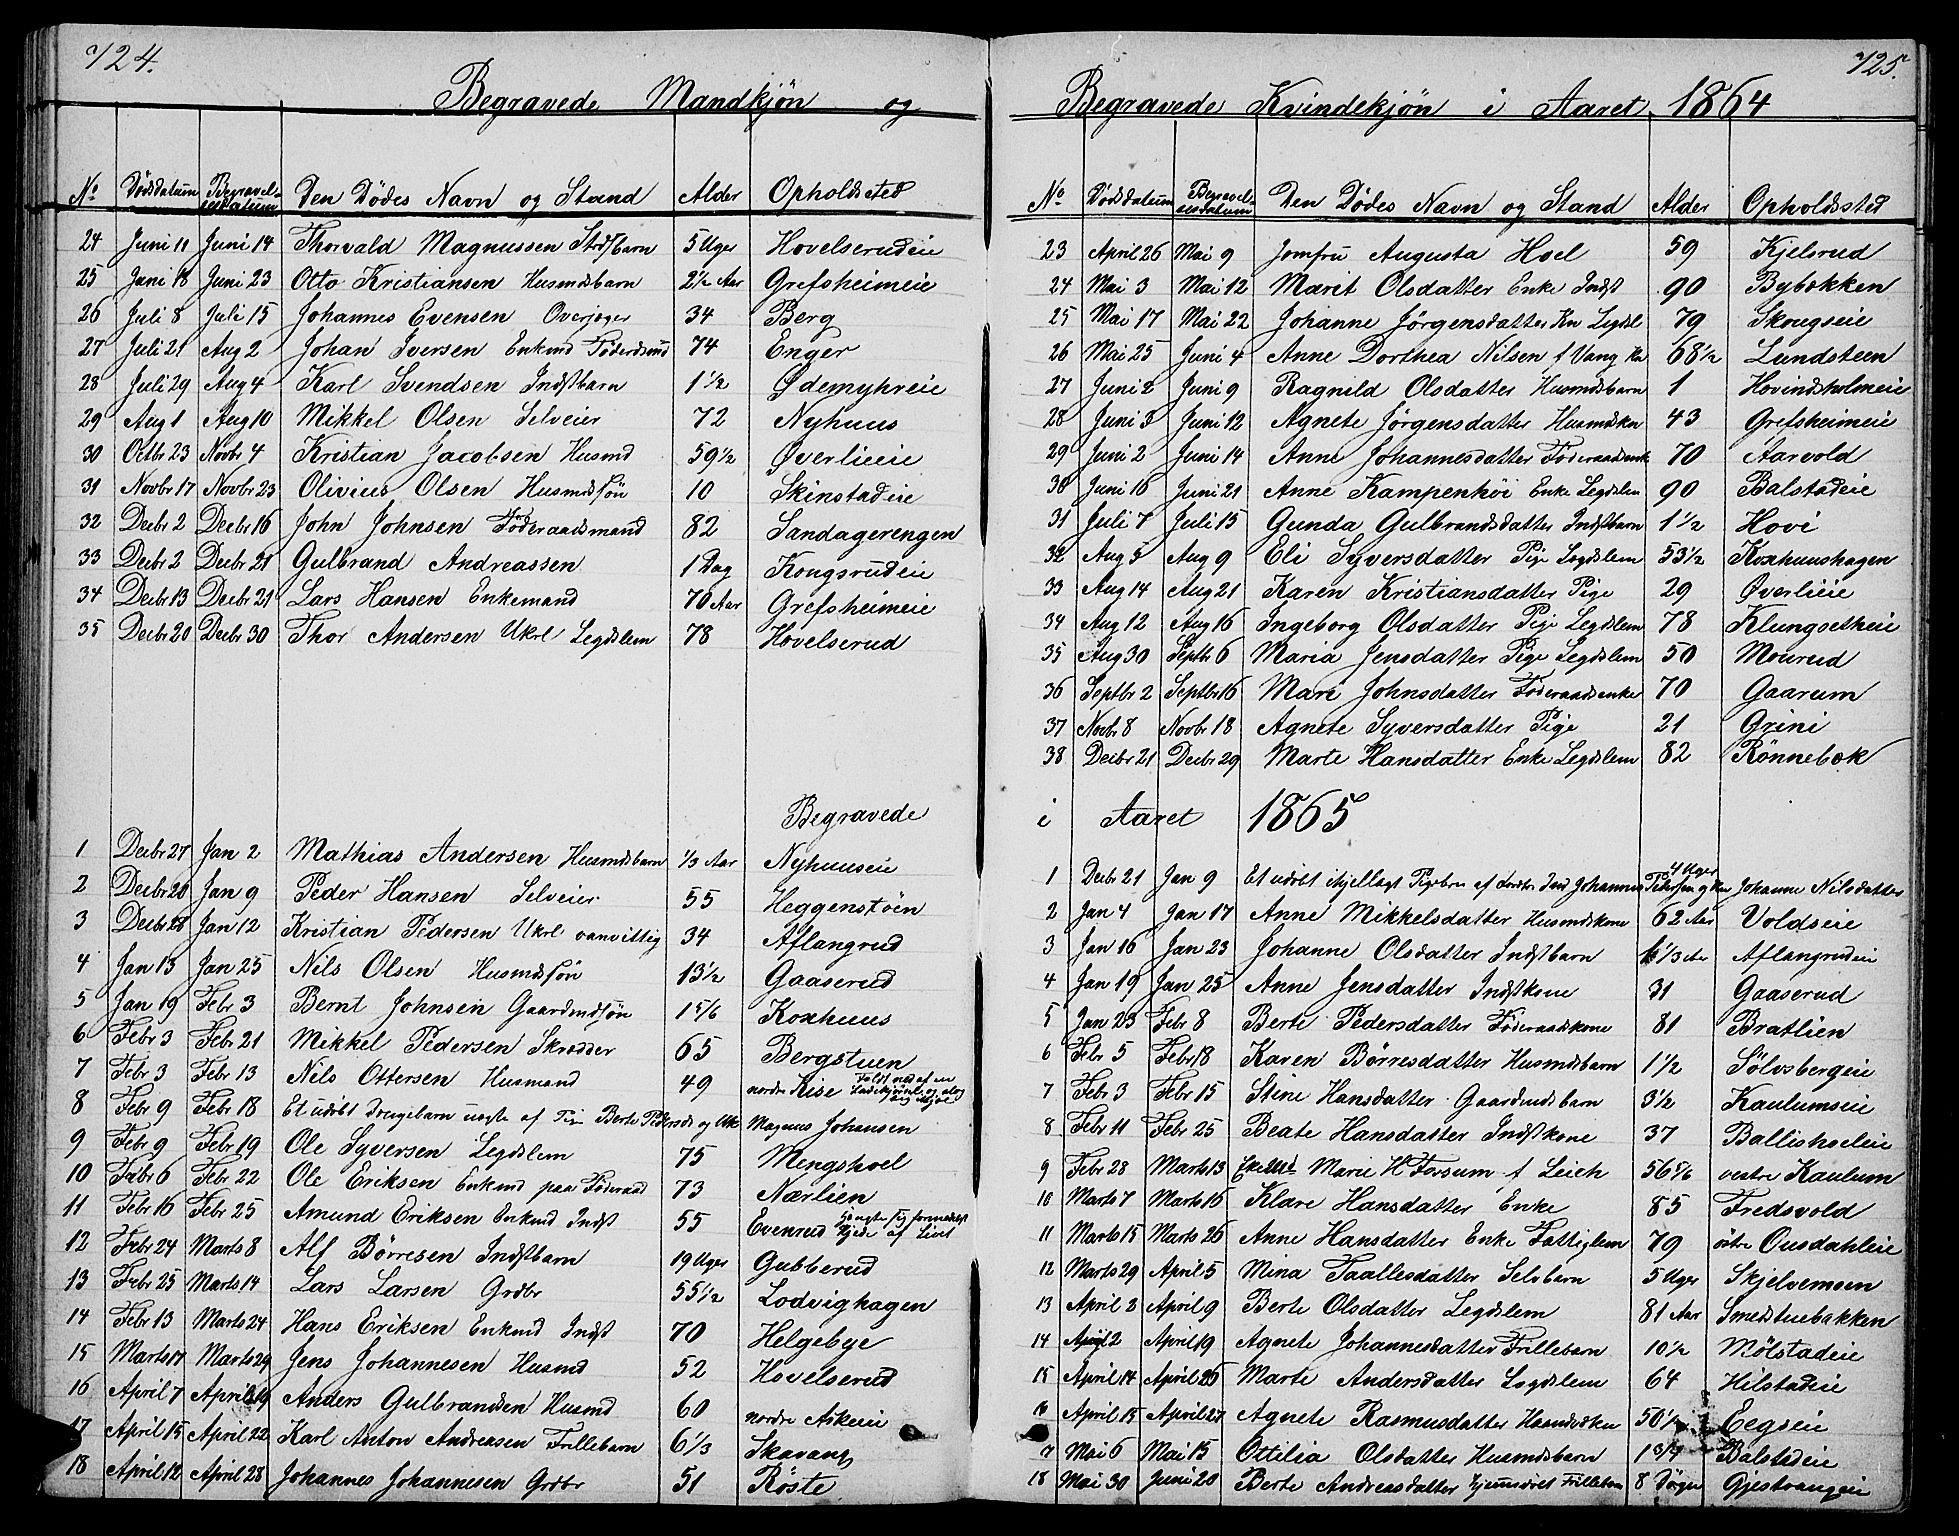 124.
Begravede Mandkjøn og
No Dødsdatum Begravelsesdatum Den Dødes Navn og Stand Alder Opholdssted
24 Juni 11 Juni 14 Thorvald Magnussen Strdsbarn 5 Uger Hovelserudeie
25 Juni 18 Juni 23 Otto Kristiansen Husmdsbarn 2 1/2 Aar Grefsheimeie
26 Juli 8 Juli 15 Johannes Evensen Overjæger 34 Berg
27 Juli 21 Aug 2 Johan Iversen Enkmd Føderdsmd 74 Enger
28 Juli 29 Aug 4 Karl Svendsen Indstbarn 1 1/2 Ødemyhreie
29 Aug 1 Aug 10 Mikkel Olsen Selveier 72 Nyhuus
30 Octbr 23 Novbr 4 Kristian Jacobsen Husmd 59 1/2 Øverlieie
31 Novbr 17 Novbr 23 Olivius Olsen Husmdsøn 10 Skinstadeie
32 Decbr 2 Decbr 16 John Johnsen Føderaadsmand 82 Sandagerengen
33 Decbr 2 Decbr 21 Gulbrand Andreassen 1 Dag Kongsrudeie
34 Decbr 13 Decbr 21 Lars Hansen Enkemand 70 Aar Grefsheimeie
35 Decbr 20 Decbr 30 Thor Andersen Ukrl Legdslem 78 Hovelserud
Begravede
1 Decbr 27 Jan 2 Mathias Andersen Husmdsbarn 1/3 Aar Nyhuuseie
2 Decbr 20 Jan 9 Peder Hansen Selveier 55 Heggenstøen
3 Decbr 28 Jan 12 Kristian Pedersen Ukrl vanvittig 34 Aflangrud
4 Jan 13 Jan 25 Nils Olsen Husmdsøn 13 1/2 Gaaserud
5 Jan 19 Febr 3 Bernt Johnsen Gaardmdsøn 1 5/6 Koxhuus
6 Febr 3 Febr 21 Mikkel Pedersen Skrædder 65 Bergstuen
7 Febr 3 Febr 13 Nils Ottersen Husmand 49 nordre Kise faldt ned af en
8 Febr 9 Febr 18 Et udøbt Drengebarn uægte af Pige Berte Pedersd og Ukr Magnus Johansen
9 Febr 9 Febr 19 Ole Syversen Legdslem 75 Mengshoel
10 Febr 6 Febr 22 Ole Eriksen Enkmd paa Føderaad 73 Nærlien
11 Febr 16 Febr 25 Amund Eriksen Enkmd Indst 55 Evenrud hængte sig formedelst Kjede af Livet
12 Febr 24 Marts 8 Alf Børresen Indstbarn 19 Uger Gubberud
13 Febr 25 Marts 14 Lars Larsen Grdbr 55 1/2 Lodvighagen
14 Febr 13 Marts 24 Hans Eriksen Enkmd Indst 70 Helgebye
15 Marts 17 Marts 29 Jens Johannesen Husmd 52 Hovelserud
16 April 7 April 19 Anders Gulbrandsen Husmd 60 nordre Askeie
17 April 15 April 22 Karl Anton Andreasen Frillebarn 6 1/3 Skavang
18 April 12 April 28 Johannes Johannesen Grdbr 51 Røste
125.
Begravede Kvindekjøn i Aaret 1864
No Dødsdatum Begravelsesdatum Den Dødes Navn og Stand Alder Opholdssted
23 April 26 Mai 9 Jomfru Augusta Hoel 59 Kjelsrud
24 Mai 3 Mai 12 Marit Olsdatter Enke Indst 90 Bybækken
25 Mai 17 Mai 22 Johanne Jørgensdatter Kn Legdsl 79 Skougseie
26 Mai 25 Juni 4 Anne Dorthea Nilsen f Vang Kn 68 1/2 Lundsteen
27 Juni 2 Juni 9 Ragnild Olsdatter Husmdsbarn 1 Hovindsholmeie
28 Juni 3 Juni 12 Agnete Jørgensdatter Husmdskn 43 Grefsheimeie
29 Juni 2 Juni 14 Anne Johannesdatter Føderaadsenk 70 Aarvold
30 Juni 16 Juni 21 Anne Kampenhøi Enke Legdslem 90 Balstadeie
31 Juli 7 Juli 15 Gunda Gulbrandsdatter Indstbarn 1 1/2 Hovi
32 Aug 5 Aug 9 Eli Syversdatter Pige Legdslem 53 1/2 Koxhuushagen
33 Aug 14 Aug 21 Karen Kristiansdatter Pige 29 Øverlieie
34 Aug 12 Aug 16 Ingeborg Olsdatter Pige Legdslem 78 Klungsetheie
35 Aug 30 Septbr 6 Maria Jensdatter Pige Legdslem 50 Mourud
36 Septbr 2 Septbr 16 Mari Johnsdatter Føderaadsenke 70 Gaarum
37 Novbr 8 Novbr 18 Agnete Syversdatter Pige 21 Grini
38 Decbr 21 Decbr 29 Marte Hansdatter Enke Legdslem 82 Rønnebæk
i Aaret 1865
1 Decbr 21 Jan 9 Et udøbt ihjellagt Pigebrn af Indst Johannes Pedersen og Kne Johanne Nilsdatter 4 Uger
2 Jan 4 Jan 17 Anne Mikkelsdatter Husmdskone 62 Aar Voldseie
3 Jan 16 Jan 23 Johanne Olsdatter Indstbarn 1/3 Aar Aflangrudeie
4 Jan 19 Jan 25 Anne Jensdatter Indstkone 31 Gaaserud
5 Jan 23 Febr 8 Berte Pedersdatter Føderaadkone 81 Bratlien
6 Febr 5 Febr 18 Karen Børresdatter Husmdsbarn 1 1/2 Sølvsbergeie
7 Febr 3 Febr 15 Stine Hansdatter Gaardmdsbarn 3 1/2 Kaulumseie
8 Febr 11 Febr 25 Beate Hansdatter Indstkone 37 Ballishoeleie
9 Febr 28 Marts 13 Marie H Forsum f Leich 56 5/6 vestre Kaulum
10 Marts 7 Marts 16 Klare Hansdatter Enke 85 Fredsvold
11 Marts 15 Marts 26 Anne Hansdatter Enke Fattiglem 79 østre Ousdahleie
12 Marts 29 April 5 Mina Taallesdatter Selvbarn 5 Uger Skjelvemoen
13 April 2 April 9 Berte Olsdatter Legdslem 81 Aar Smedstuebakken
14 April 2 April 19 Agnete Johannesdatter Frillebarn 10 1/2 Mølstadeie
15 April 14 April 26 Marte Andersdatter Legdslem 64 Hilstadeie
16 April 15 April 27 Agnete Rasmusdatter Haandvkskn 50 1/2 Eegseie
7 Mai 6 Mai 15 Ottilia Olsdatter Husmdsbarn 1 3/4 Balstadeie
18 Mai 30 Juni 20 Berte Andreasdatter hjemmedøbt Frillebarn 8 Døgn Gjestvangeie